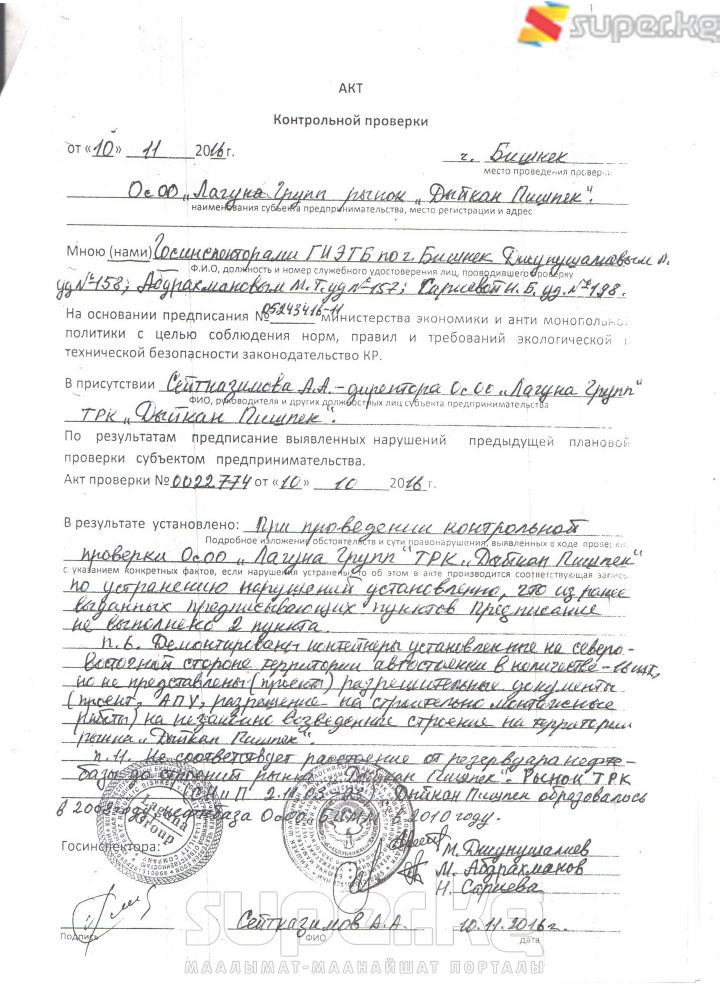 super.kg
АКТ
Контрольной проверки
от «10» 11 2016г. г. Бишкек
место проведения провер
ОсОО „Лагуна Групп рынок „Дыйкан Пишпек".
наименования субъекта предпринимательства, место регистрации и адрес
Мною (нами) Госинспекторами ГИЭТБ по г. Бишкек Джунушалиевым А.
Ф.И.О, должность и номер служебного удостоверения лиц, проводившего проверку
уд №158; Абдрахмановым М.Т. уд №152; Сариевой Н.Б. уд. №198.
На основании предписания № 05243416-11 министерства экономики и анти монополь
политики с целью соблюдения норм, правил и требований экологической
технической безопасности законодательство КР.
В присутствии Сейтназимова А.А. – директора ОсОО „Лагуна Групп"
ФИО, руководителя и других должностных лиц субъекта предпринимательства
ТРК „Дыйкан Пишпек".
По результатам предписание выявленных нарушений предыдущей плановой
проверки субъектом предпринимательства.
Акт проверки № 0022774 от «10» 10 2016г.
В результате установлено: При проведении контрольной
Подробное изложении обстоятельств и сути правонарушения, выявленных в ходе прове
проверки ОсОО „Лагуна Групп" ТРК „Дыйкан Пишпек"
с указанием конкретных фактов, если нарушения устранены то об этом в акте производится соответствующая запись
по устранению нарушений установлено, что из ранее
выданных предписывающих пунктов Предписание
не выполнено 2 пункта.
п.6. Демонтированы контейнеры установленные на северо-
восточной стороне территории автостоянки в количестве
но не представлены (проекты) разрешительные документы
(проект, АПУ, разрешение на строительно монтажные
работы) на незаконно возведенные строения на территории
рынка „Дыйкан Пишпек".
п.11. Не соответствует расстояние от резервуара нефте-
базы до строений рынка „Дыйкан Пишпек" Рынок ТРК
СНиП 2.11.03-93. Дыйкан Пишпек образовалось
в 2008 году, нефтебаза ОсОО в 2010 году.
Laguna Group
Госинспектора:
М. Джунушалиев
М. Абдрахманов
Н. Сариева
Сейтназимов А.А. 10.11.2016г.
Подпись ФИО дата
super.kg
МААЛЫМАТ-МААНАЙШАТ ПОРТАЛЫ